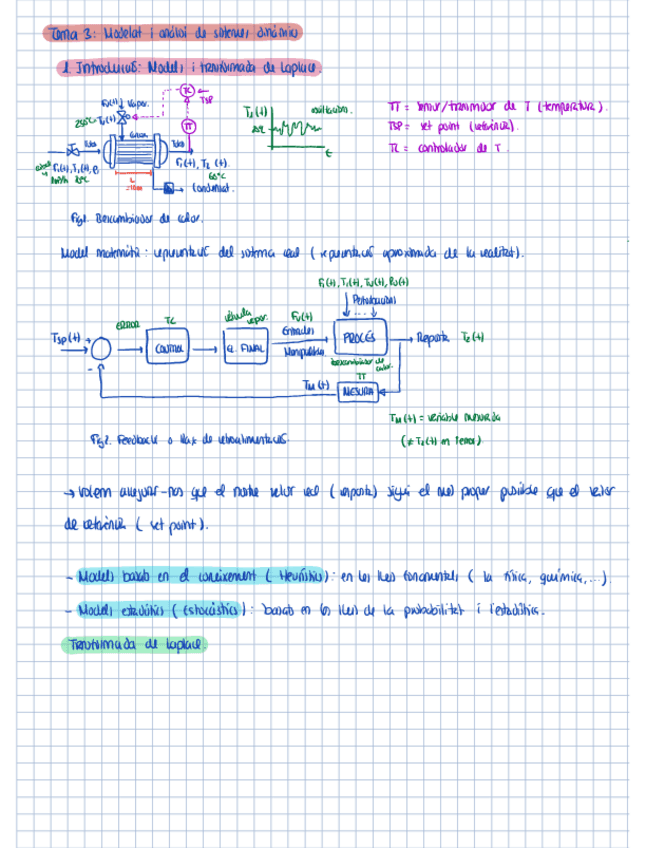 Tema 3: Modelat i anàlisi de sistemes dinàmics
1. Introducció: Models i transformada de Laplace.
TC
TSP
TT
Vapor.
250°C
Tubs
Tubs
L
F₁(t), T₂(t).
60°C
Condensat.
T₂(t)
oscil·lacions.
t
TT = sensor/transmissor de T (temperatura).
TSP = set point (referència).
TC = controlador de T
Fig1. Bescanviador de calor.
Model matemàtic: representació del sistema real (representació aproximada de la realitat).
Pertorbacions
Tsp(t)
+
-
ERROR
TC
CONTROL
vàlvula vapor.
E. FINAL
Fv(t)
Entrades
Manipulables
PROCÉS
bescanviador de calor.
Resposta T₂(t)
TT
MESURA
TM(t)
TM(t) = variable mesurada
(≠ T₂(t) en error)
Fig2. Feedback o llaç de retroalimentació.
→ Volem assegurar-nos que el nostre valor real (resposta) sigui el més proper possible que el valor
de referència (set point).
- Models basats en el coneixement (Heurístics): en les lleis fonamentals (la física, química,...).
- Models estadístics (Estocàstics): basats en les lleis de la probabilitat i l'estadística.
Transformada de Laplace.